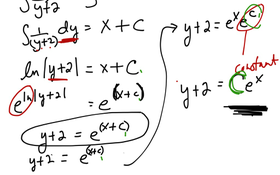 ∫ 1/(y+2) dy = ∫ x + C
ln|y+2| = x + C
e^(ln|y+2|) = e^(x+c)
y+2 = e^(x+c)
y+2 = e^(x+c)
y+2 = e^x e^c
constant
y+2 = C e^x